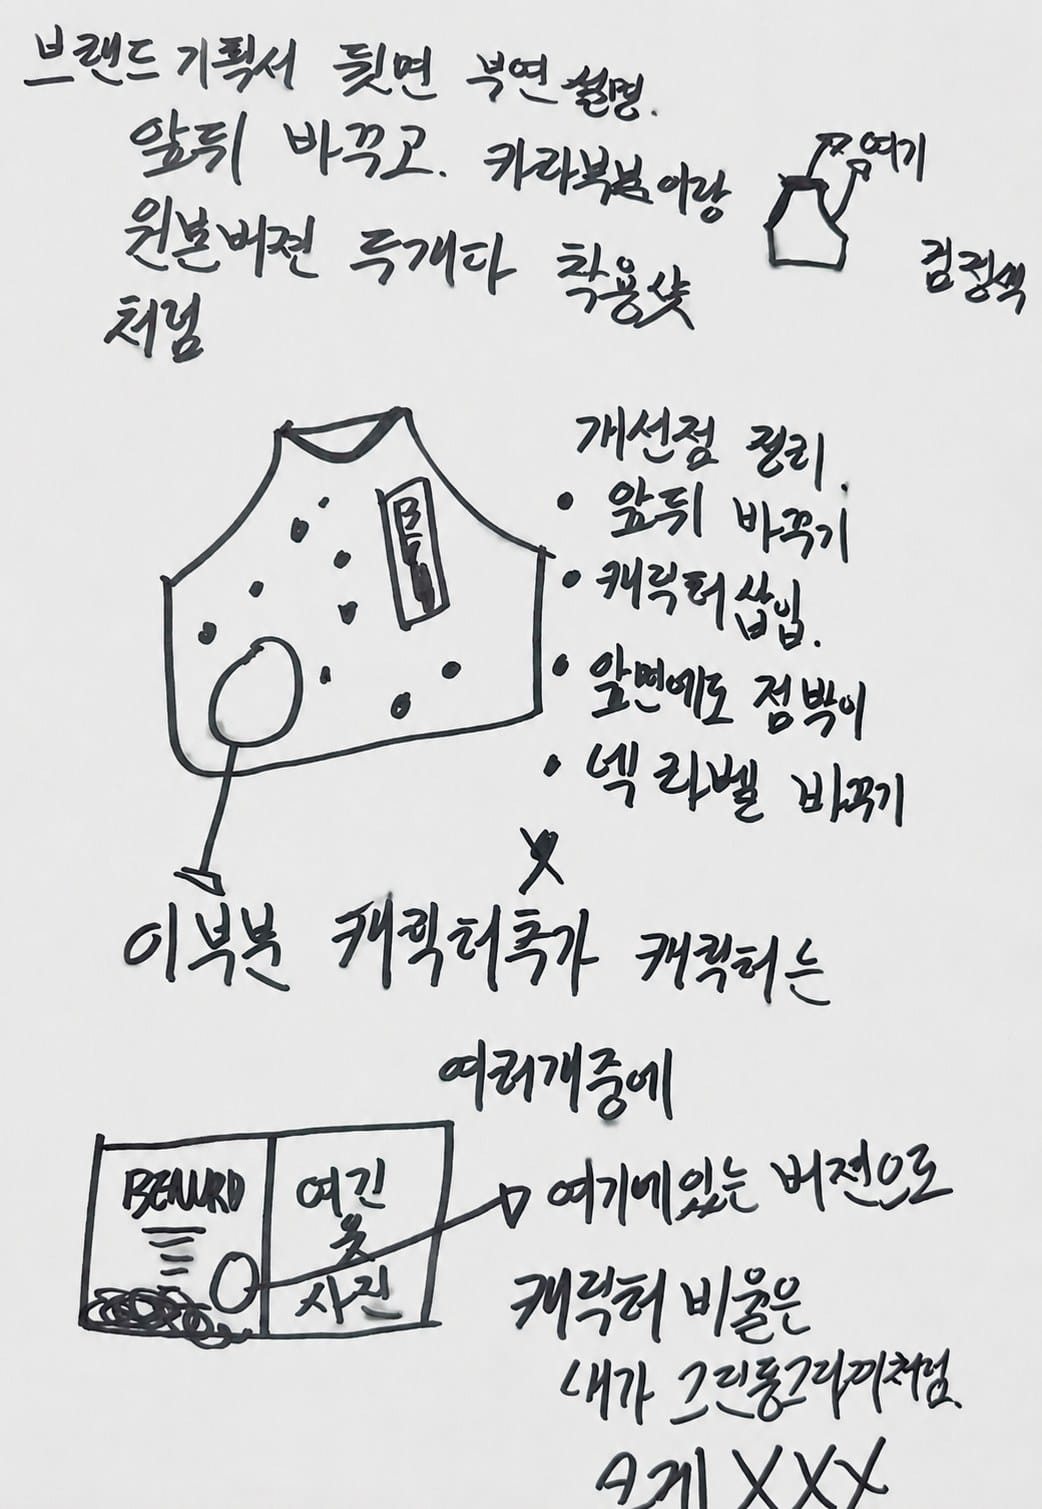 브랜드 기획서 뒷면 부연 설명.
앞뒤 바꾸고. 카라부분이랑
여기
원본버젼 두개다 착용샷
검정색
처럼
개선점 정리.
• 앞뒤 바꾸기
• 캐릭터 삽입.
• 앞면에도 점박이
• 넥 라벨 바꾸기
X
이부분 캐릭터추가 캐릭터는
여러개중에
여긴
옷
사진
여기에있는 버젼으로
캐릭터 비율은
내가 그린동그라미처럼.
XXX